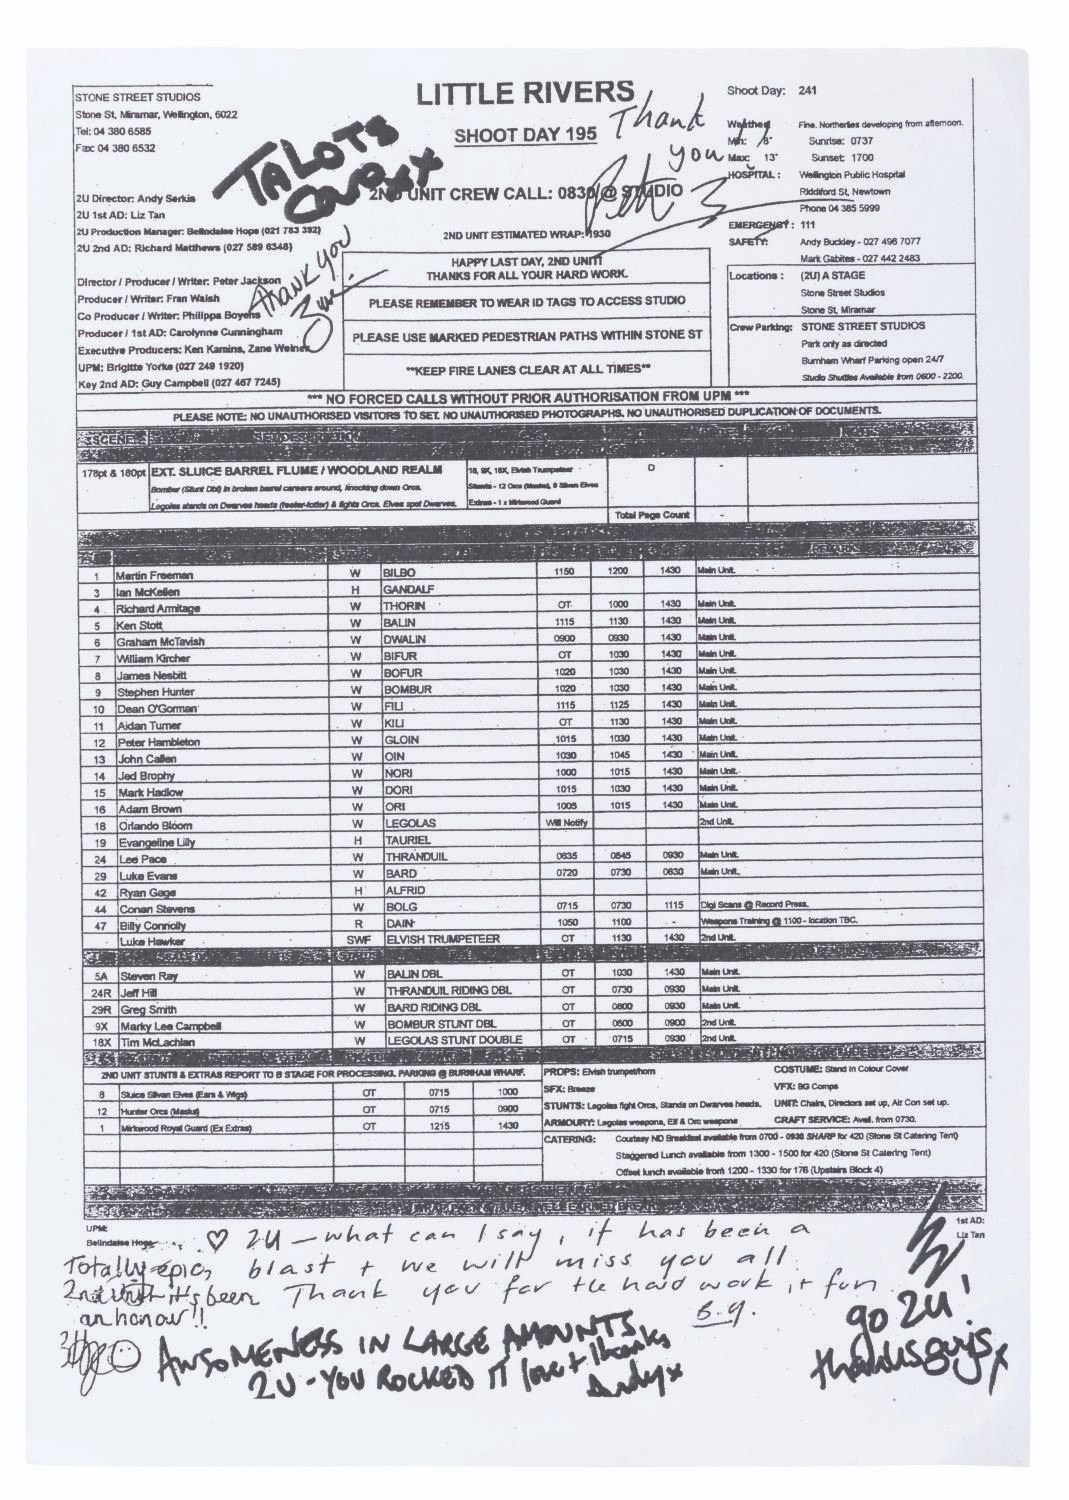 STONE STREET STUDIOS
Stone St, Miramar, Wellington, 6022
Tel: 04 380 6585
Fax: 04 380 6532
LITTLE RIVERS
SHOOT DAY 195
2ND UNIT CREW CALL: 0830 @ STUDIO
2ND UNIT ESTIMATED WRAP: 1930
Thank you
Shoot Day: 241
Weather: Fine. Northerlies developing from afternoon.
Min: 8° Sunrise: 0737
Max: 13° Sunset: 1700
HOSPITAL: Wellington Public Hospital
Riddiford St, Newtown
Phone 04 385 5999
EMERGENCY: 111
SAFETY: Andy Buckley - 027 496 7077
Mark Gabites - 027 442 2483
Locations: (2U) A STAGE
Stone Street Studios
Stone St, Miramar
Crew Parking: STONE STREET STUDIOS
Park only as directed
Burnham Wharf Parking open 24/7
Studio Shuttles Available from 0600 - 2200.
2U Director: Andy Serkis
2U 1st AD: Liz Tan
2U Production Manager: Belindalee Hope (021 783 392)
2U 2nd AD: Richard Matthews (027 589 6348)
Thank you
Director / Producer / Writer: Peter Jackson
Producer / Writer: Fran Walsh
Co Producer / Writer: Philippa Boyens
Producer / 1st AD: Carolynne Cunningham
Executive Producers: Ken Kamins, Zane Weiner
UPM: Brigitte Yorke (027 249 1920)
Key 2nd AD: Guy Campbell (027 467 7245)
HAPPY LAST DAY, 2ND UNIT!
THANKS FOR ALL YOUR HARD WORK.
PLEASE REMEMBER TO WEAR ID TAGS TO ACCESS STUDIO
PLEASE USE MARKED PEDESTRIAN PATHS WITHIN STONE ST
**KEEP FIRE LANES CLEAR AT ALL TIMES**
*** NO FORCED CALLS WITHOUT PRIOR AUTHORISATION FROM UPM ***
PLEASE NOTE: NO UNAUTHORISED VISITORS TO SET. NO UNAUTHORISED PHOTOGRAPHS. NO UNAUTHORISED DUPLICATION OF DOCUMENTS.
178pt & 180pt EXT. SLUICE BARREL FLUME / WOODLAND REALM 18, 9X, 18X, Elvish Trumpeteer D -
Bombur (Stunt Dbl) in broken barrel careers around, knocking down Orcs. Stunts - 12 Orcs (Masks), 8 Silvan Elves
Legolas stands on Dwarves heads (teeter-totter) & fights Orcs. Elves spot Dwarves. Extras - 1 x Mirkwood Guard
Total Page Count -
1 Martin Freeman W BILBO 1150 1200 1430 Main Unit.
3 Ian McKellen H GANDALF
4 Richard Armitage W THORIN OT 1000 1430 Main Unit.
5 Ken Stott W BALIN 1115 1130 1430 Main Unit.
6 Graham McTavish W DWALIN 0900 0930 1430 Main Unit.
7 William Kircher W BIFUR OT 1030 1430 Main Unit.
8 James Nesbitt W BOFUR 1020 1030 1430 Main Unit.
9 Stephen Hunter W BOMBUR 1020 1030 1430 Main Unit.
10 Dean O'Gorman W FILI 1115 1125 1430 Main Unit.
11 Aidan Turner W KILI OT 1130 1430 Main Unit.
12 Peter Hambleton W GLOIN 1015 1030 1430 Main Unit.
13 John Callen W OIN 1030 1045 1430 Main Unit.
14 Jed Brophy W NORI 1000 1015 1430 Main Unit.
15 Mark Hadlow W DORI 1015 1030 1430 Main Unit.
16 Adam Brown W ORI 1005 1015 1430 Main Unit.
18 Orlando Bloom W LEGOLAS Will Notify 2nd Unit.
19 Evangeline Lilly H TAURIEL
24 Lee Pace W THRANDUIL 0635 0845 0930 Main Unit.
29 Luke Evans W BARD 0720 0730 0830 Main Unit.
42 Ryan Gage H ALFRID
44 Conan Stevens W BOLG 0715 0730 1115 Digi Scans @ Record Press.
47 Billy Connolly R DAIN 1050 1100 - Weapons Training @ 1100 - location TBC.
Luke Hawker SWF ELVISH TRUMPETEER OT 1130 1430 2nd Unit.
5A Steven Ray W BALIN DBL OT 1030 1430 Main Unit.
24R Jeff Hill W THRANDUIL RIDING DBL OT 0730 0930 Main Unit.
29R Greg Smith W BARD RIDING DBL OT 0800 0930 Main Unit.
9X Marky Lee Campbell W BOMBUR STUNT DBL OT 0600 0900 2nd Unit.
18X Tim McLachlan W LEGOLAS STUNT DOUBLE OT 0715 0930 2nd Unit.
2ND UNIT STUNTS & EXTRAS REPORT TO B STAGE FOR PROCESSING. PARKING @ BURNHAM WHARF.
8 Sluice Silvan Elves (Ears & Wigs) OT 0715 1000
12 Hunter Orcs (Masks) OT 0715 0900
1 Mirkwood Royal Guard (Ex Extras) OT 1215 1430
PROPS: Elvish trumpet/horn COSTUME: Stand in Colour Cover
SFX: Breeze VFX: BG Comps
STUNTS: Legolas fight Orcs, Stands on Dwarves heads. UNIT: Chairs, Directors set up, Air Con set up.
ARMOURY: Legolas weapons, Elf & Orc weapons CRAFT SERVICE: Avail. from 0730.
CATERING: Courtesy ND Breakfast available from 0700 - 0930 SHARP for 420 (Stone St Catering Tent)
Staggered Lunch available from 1300 - 1500 for 420 (Stone St Catering Tent)
Offset lunch available from 1200 - 1330 for 176 (Upstairs Block 4)
UPM:
Belindalee Hope
1st AD:
Liz Tan
♡ 2U – what can I say, it has been a
Totally epic, blast + we will miss you all.
2nd unit it's been Thank you for the hard work, it fun
an honour!! B.Y.
AWSOMENESS IN LARGE AMOUNTS
2U - YOU ROCKED IT love + thanks
Andy x
go 2U!
thanks guys x